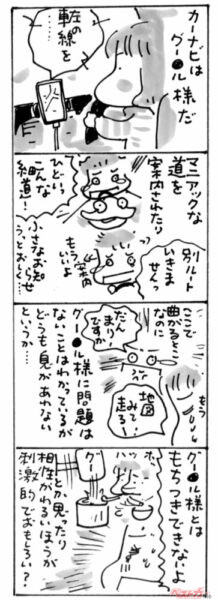 カーナビは
グー●ル様だ
左の
車線を
……
マニアックな
道を
案内されたり
ひどい
こんな
細道！
別ルート
いきま
せう
もう
いいよ
案内
うっとおしく…
ここで
曲がるとこ
なのに
だん
まり
ですか
もう
地図
みて
走る！
グー●ル様に問題は
ないことはわかっているが
どうも息があわない
というか…
グー●ル様とは
もちつきできないよ
ホッ
ハッ
グー
とか思ったり
相性がわるいほうが
刺激的でおもしろい？